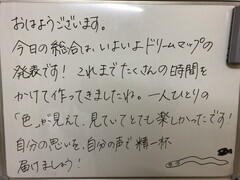 おはようございます。
今日の総合は、いよいよドリームマップの
発表です！これまでたくさんの時間を
かけて作ってきましたね。一人ひとりの
「色」が見えて、見ていてとても楽しかったです！
自分の思いを、自分の声で精一杯
届けましょう！